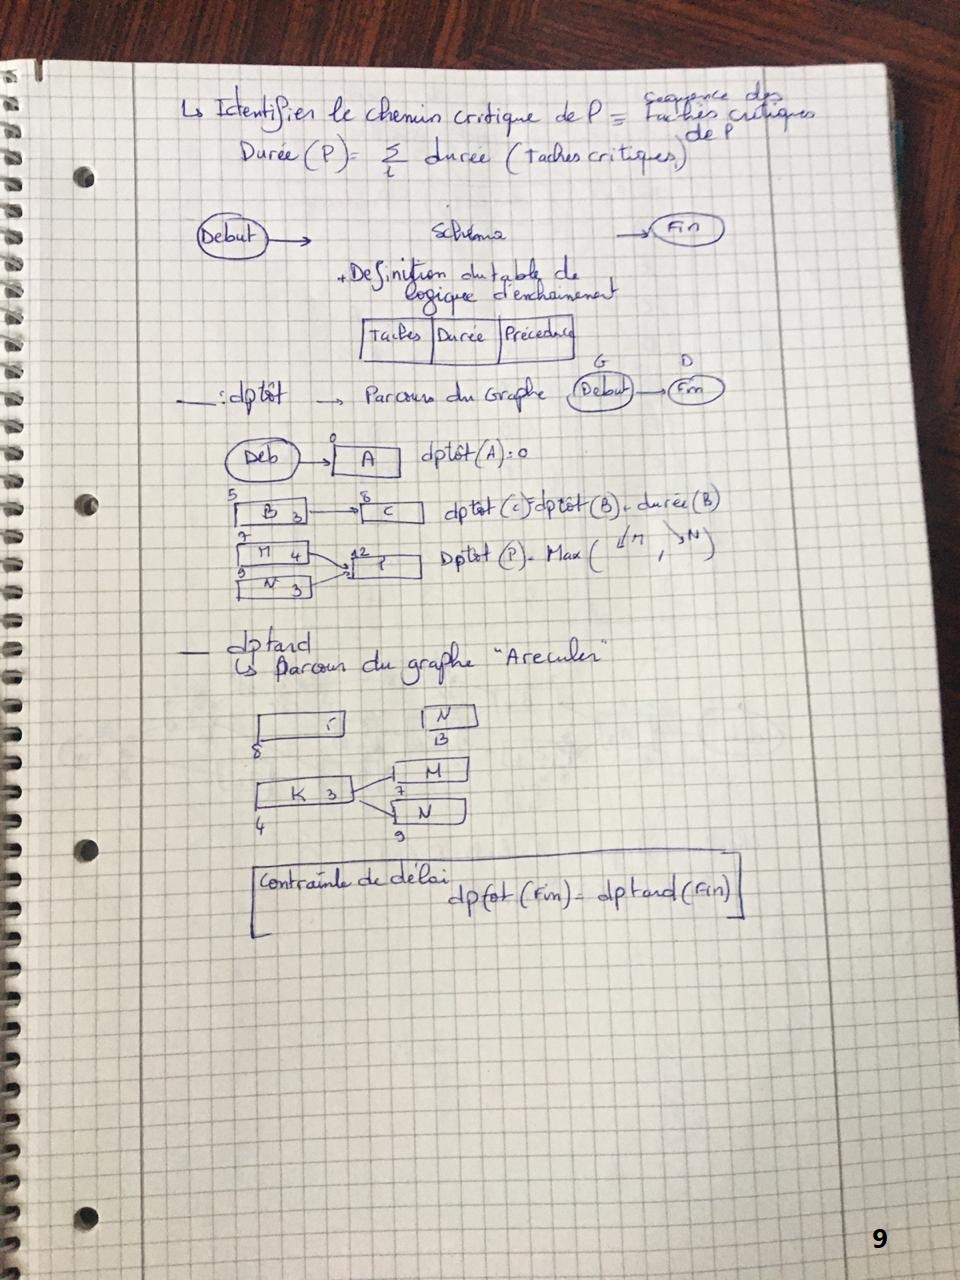 ↳ Identifier le chemin critique de P = sequence des
taches critiques
de P
Durée (P) = Σ durée (Taches critiques)
i
Debut → Schéma → Fin
+ Definition du table de
logique d'enchainement
Taches Durée Précedence
G D
— : dptôt → Parcours du Graphe Debut → Fin
0
Deb → A dptôt (A) : 0
5 8
B 3 → C dptôt (C) = dptôt (B) + durée (B)
7
M 4 12
P Dptôt (P) = Max ( ↙M , ↘N )
9
N 3
— dptard
↳ Parcour du graphe "Areculer"
N
8 13
K 3 M
7
N
4 9
Contrainte de délai
dptot (Fin) = dptard (Fin)
9